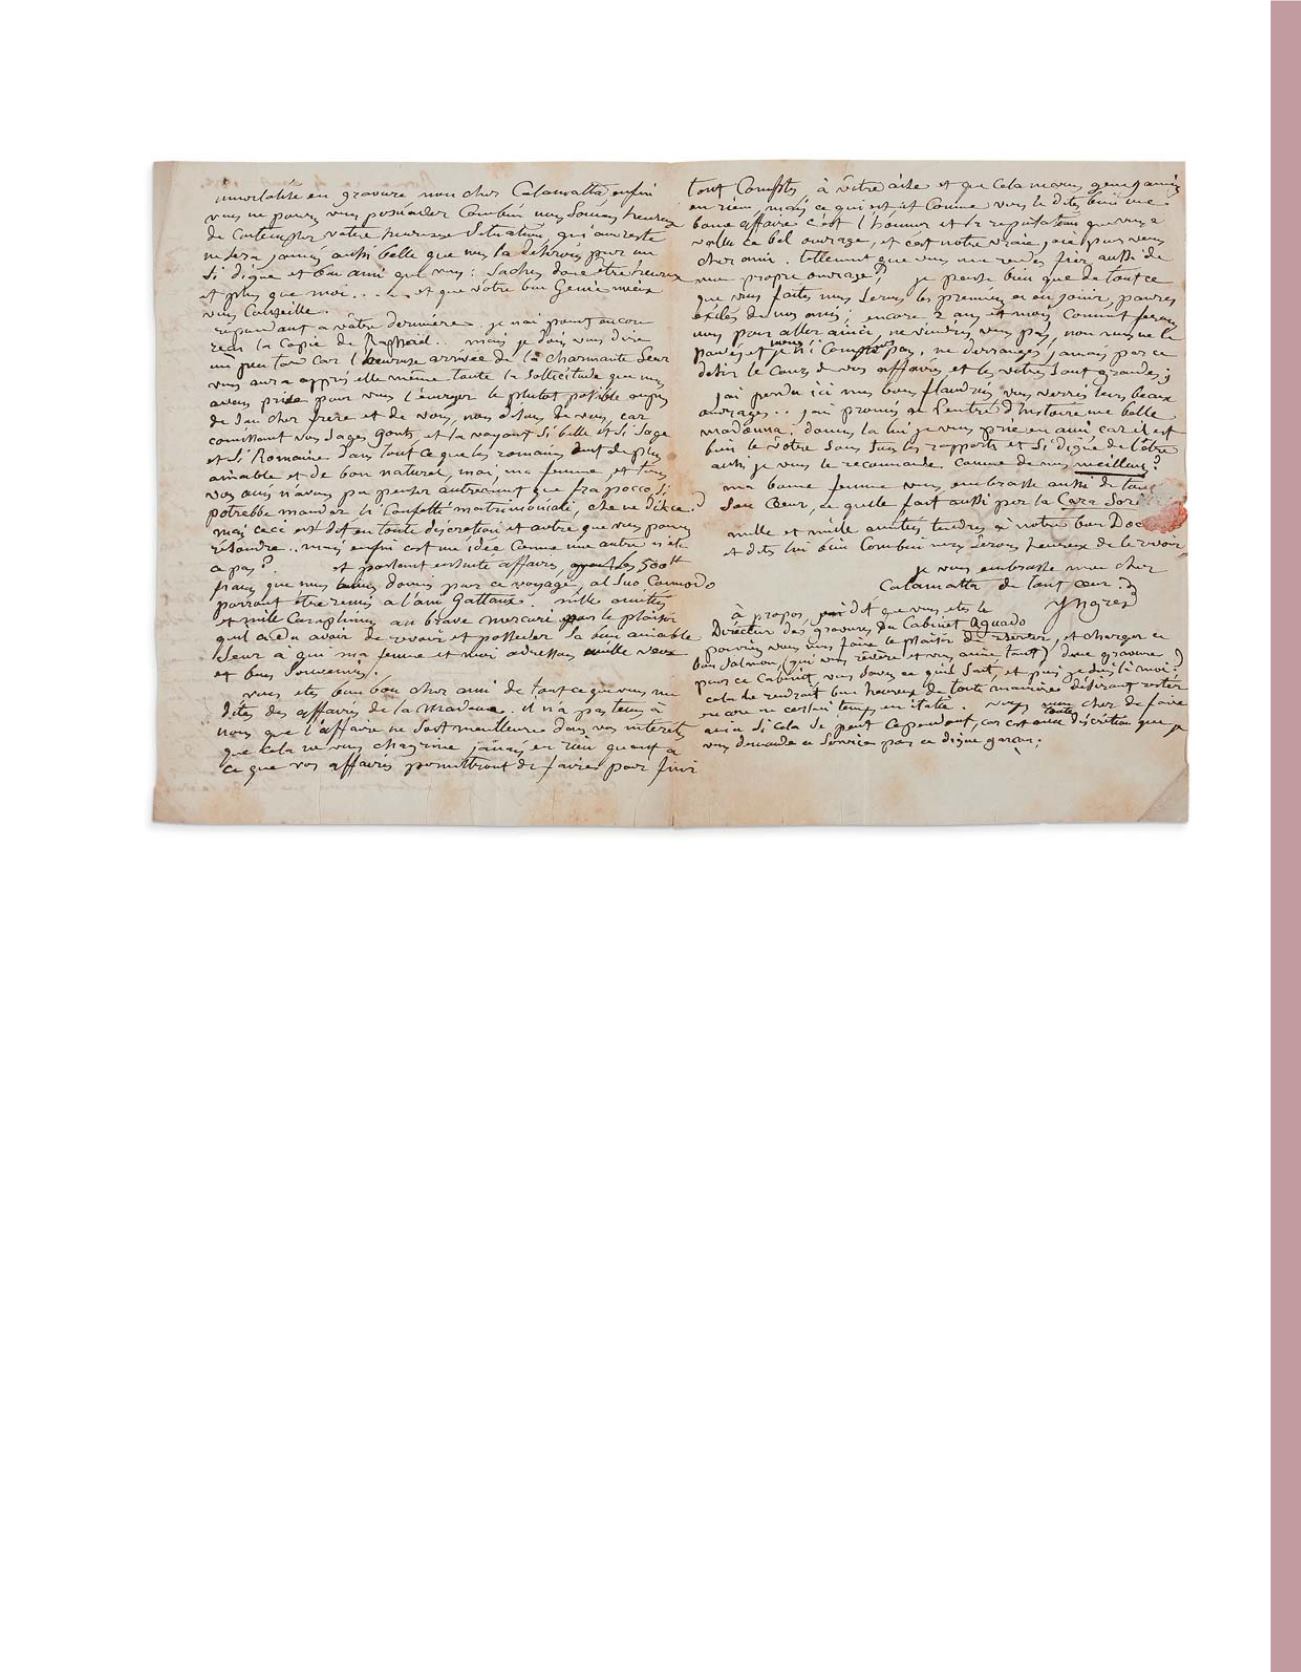 immortalité en gravure mon cher Calamatta, enfin
vous ne pouvez vous persuader Combien nous Sommes heureux
de Contempler votre heureuse Situation, qui au reste
ne sera jamais aussi belle que nous la désirons pour un
Si digne et bon ami que vous : Sachez donc être heureux
et plus que moi.... et que votre bon Génie mieux
vous Conseille.
répondant a votre dernière. je n'ai point encore
recu la Copie de Raphael.. mais je dois vous dire
un peu tard car l'heureuse arrivée de la charmante Seur
vous aura appris elle même toute la Sollicitude que nous
avons prise pour vous l'envoyer le plutot possible auprès
de Son cher frere et de vous, nous disons de vous, car
connaissant vos Sages gouts, et la voyant Si belle et Si Sage
et Si Romaine dans tout ce que les romains ont de plus
aimable et de bon naturel, moi, ma femme, et tous
vos amis n'avons pu penser autrement que fra pocco, Si
potrebbe mandar li Confetti matrimoniali, che ne dice ?
mais ceci est dit en toute discretion et autre que vous pouvez
résoudre.. mais enfin c'est une idée Comme une autre n'est
ce pas ? et parlant ensuite affaires, les 500 ff
francs que nous avons donnés pour ce voyage, al Suo Commodo
pourront être remis a l'ami Gatteaux. mille amitiés
et mille Complimens au brave mercuri pour le plaisir
qu'il a du avoir de revoir et posseder Sa bien aimable
Seur à qui ma femme et moi adressons mille veux
et bons Souvenirs.
vous etes bien bon cher ami de tout ce que vous me
dites des affaires de la Madone. il n'a pas tenu à
nous que l'affaire ne Soit meilleure dans vos interets
que cela ne vous chagrine jamais en rien quant a
ce que vos affaires permettront de faire pour finir
tout Compte, à votre aise et que Cela ne vous gene jamais
en rien, mais ce qui est et Comme vous le dites bien une
bonne affaire c'est l'honneur et la reputation que vous a
vallu ce bel ouvrage, et c'est notre vraie joie pour vous
cher ami. tellement que vous me rendez fier aussi de
mon propre ouvrage ? je pense bien que de tout ce
que vous faites nous Serons les premiers a en jouir, pauvres
éxilés de nos amis ; encore 2 ans et mois Comment ferons
nous pour aller ainsi, ne viendrez vous pas, nous
pour ce
désir le Cours de vos affaires et les votres Sont grandes ;
j'ai perdu ici mes bons flandrin vous verrez leurs beaux
ouvrages.. j'ai promis a Lentré d'histoire une belle
madonna : donnez la lui je vous prie en ami car il est
bien le votre Sous tous les rapports et Si digne de l'être
aussi je vous le recommande Comme de nos meilleurs ?
ma bonne femme vous embrasse aussi de tout
Son Cœur, ce quelle fait aussi par la Cara Sor
mille et mille amitiés tendres a notre bon Doc
et dites lui bien Combien nous Serons heureux de le revoir
je vous embrasse mon cher
Calamatta de tout cœur.
Ingres
à propos, dit que vous etes le
Directeur des gravures Du Cabinet Aguado
pourriez vous nous faire le plaisir de, et charger ce
bon Salmon, (qui vous révère et vous aime tant) d'une gravure
pour ce Cabinet, vous Savez ce qu'il Sait, et puis je dirai à moi :
cela le rendrait bien heureux de toute maniere désirant rester
encore un certain temps en italie. voyez mon cher de faire
ainsi Si cela Se peut Cependant, car c'est avec toute discrétion que je
vous demande ce Service pour ce digne garcon ;